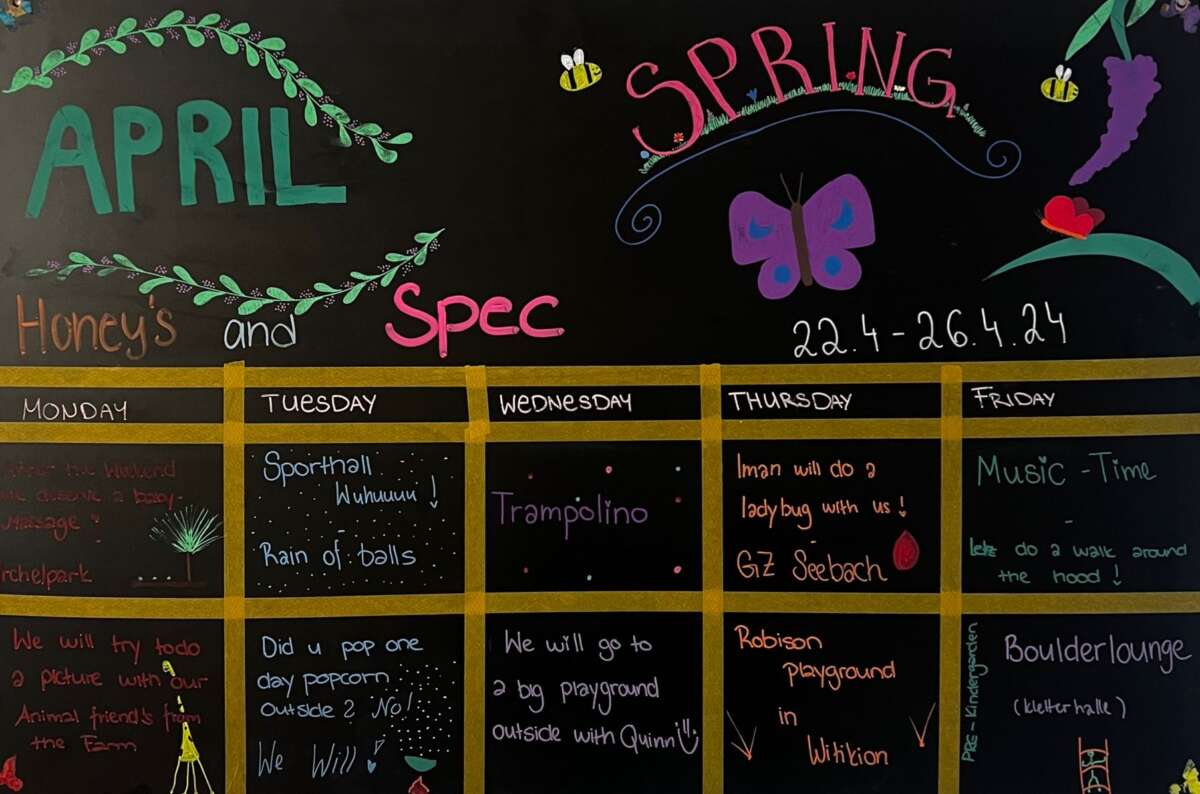 APRIL
SPRING
Honey's and Spec
22.4 - 26.4.24
MONDAY
TUESDAY
WEDNESDAY
THURSDAY
FRIDAY
the weekend
we deserve a baby-
massage
Sporthall
Wuhuuuu !
Rain of balls
Trampolino
Iman will do a
ladybug with us !
GZ Seebach
Music - Time
-
lets do a walk around
the hood !
We will try todo
a picture with our
Animal friend's from
the Farm
Did u pop one
day popcorn
outside ? No!
We Will !
We will go to
a big playground
outside with Quinn
Robison
playground
in
Witikion
PRG - Kindergarden
Boulderlounge
(kletterhalle)